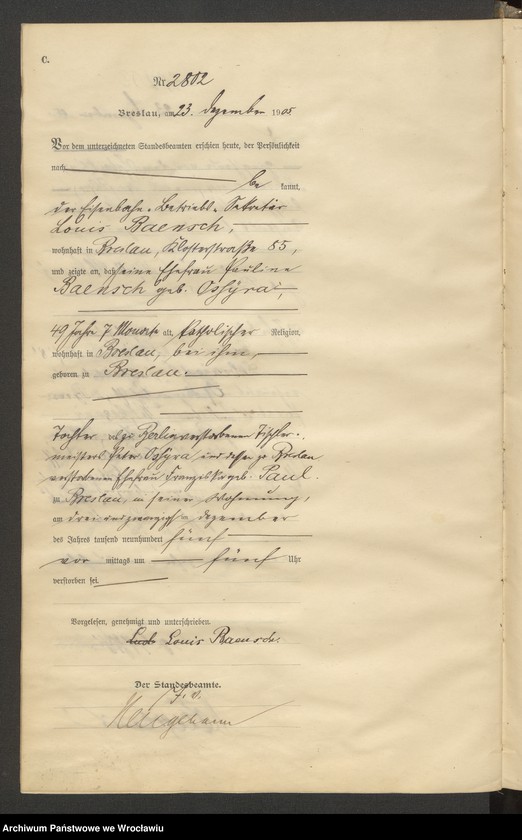 C.
Nr. 2802
Breslau, am 23. Dezember 1905
Vor dem unterzeichneten Standesbeamten erschien heute, der Persönlichkeit
nach
be kannt,
der Eisenbahn-Betriebs-Sekretär
Louis Baensch,
wohnhaft in Breslau, Klosterstraße 85,
und zeigte an, daß seine Ehefrau Pauline
Baensch geb. Ossyra,
49 Jahre 7 Monate alt, katholischer Religion,
wohnhaft in Breslau, bei ihm,
geboren zu Breslau.
Tochter des zu Berlin verstorbenen Tischler-
meisters Peter Ossyra und dessen zu Breslau
verstorbenen Ehefrau Franziska geb. Paul.
zu Breslau, in seiner Wohnung,
am drei und zwanzigsten Dezember
des Jahres tausend neunhundert fünf
vor mittags um fünf Uhr
verstorben sei.
Vorgelesen, genehmigt und unterschrieben.
Louis Baensch.
Der Standesbeamte.
J. V.
Archiwum Państwowe we Wrocławiu